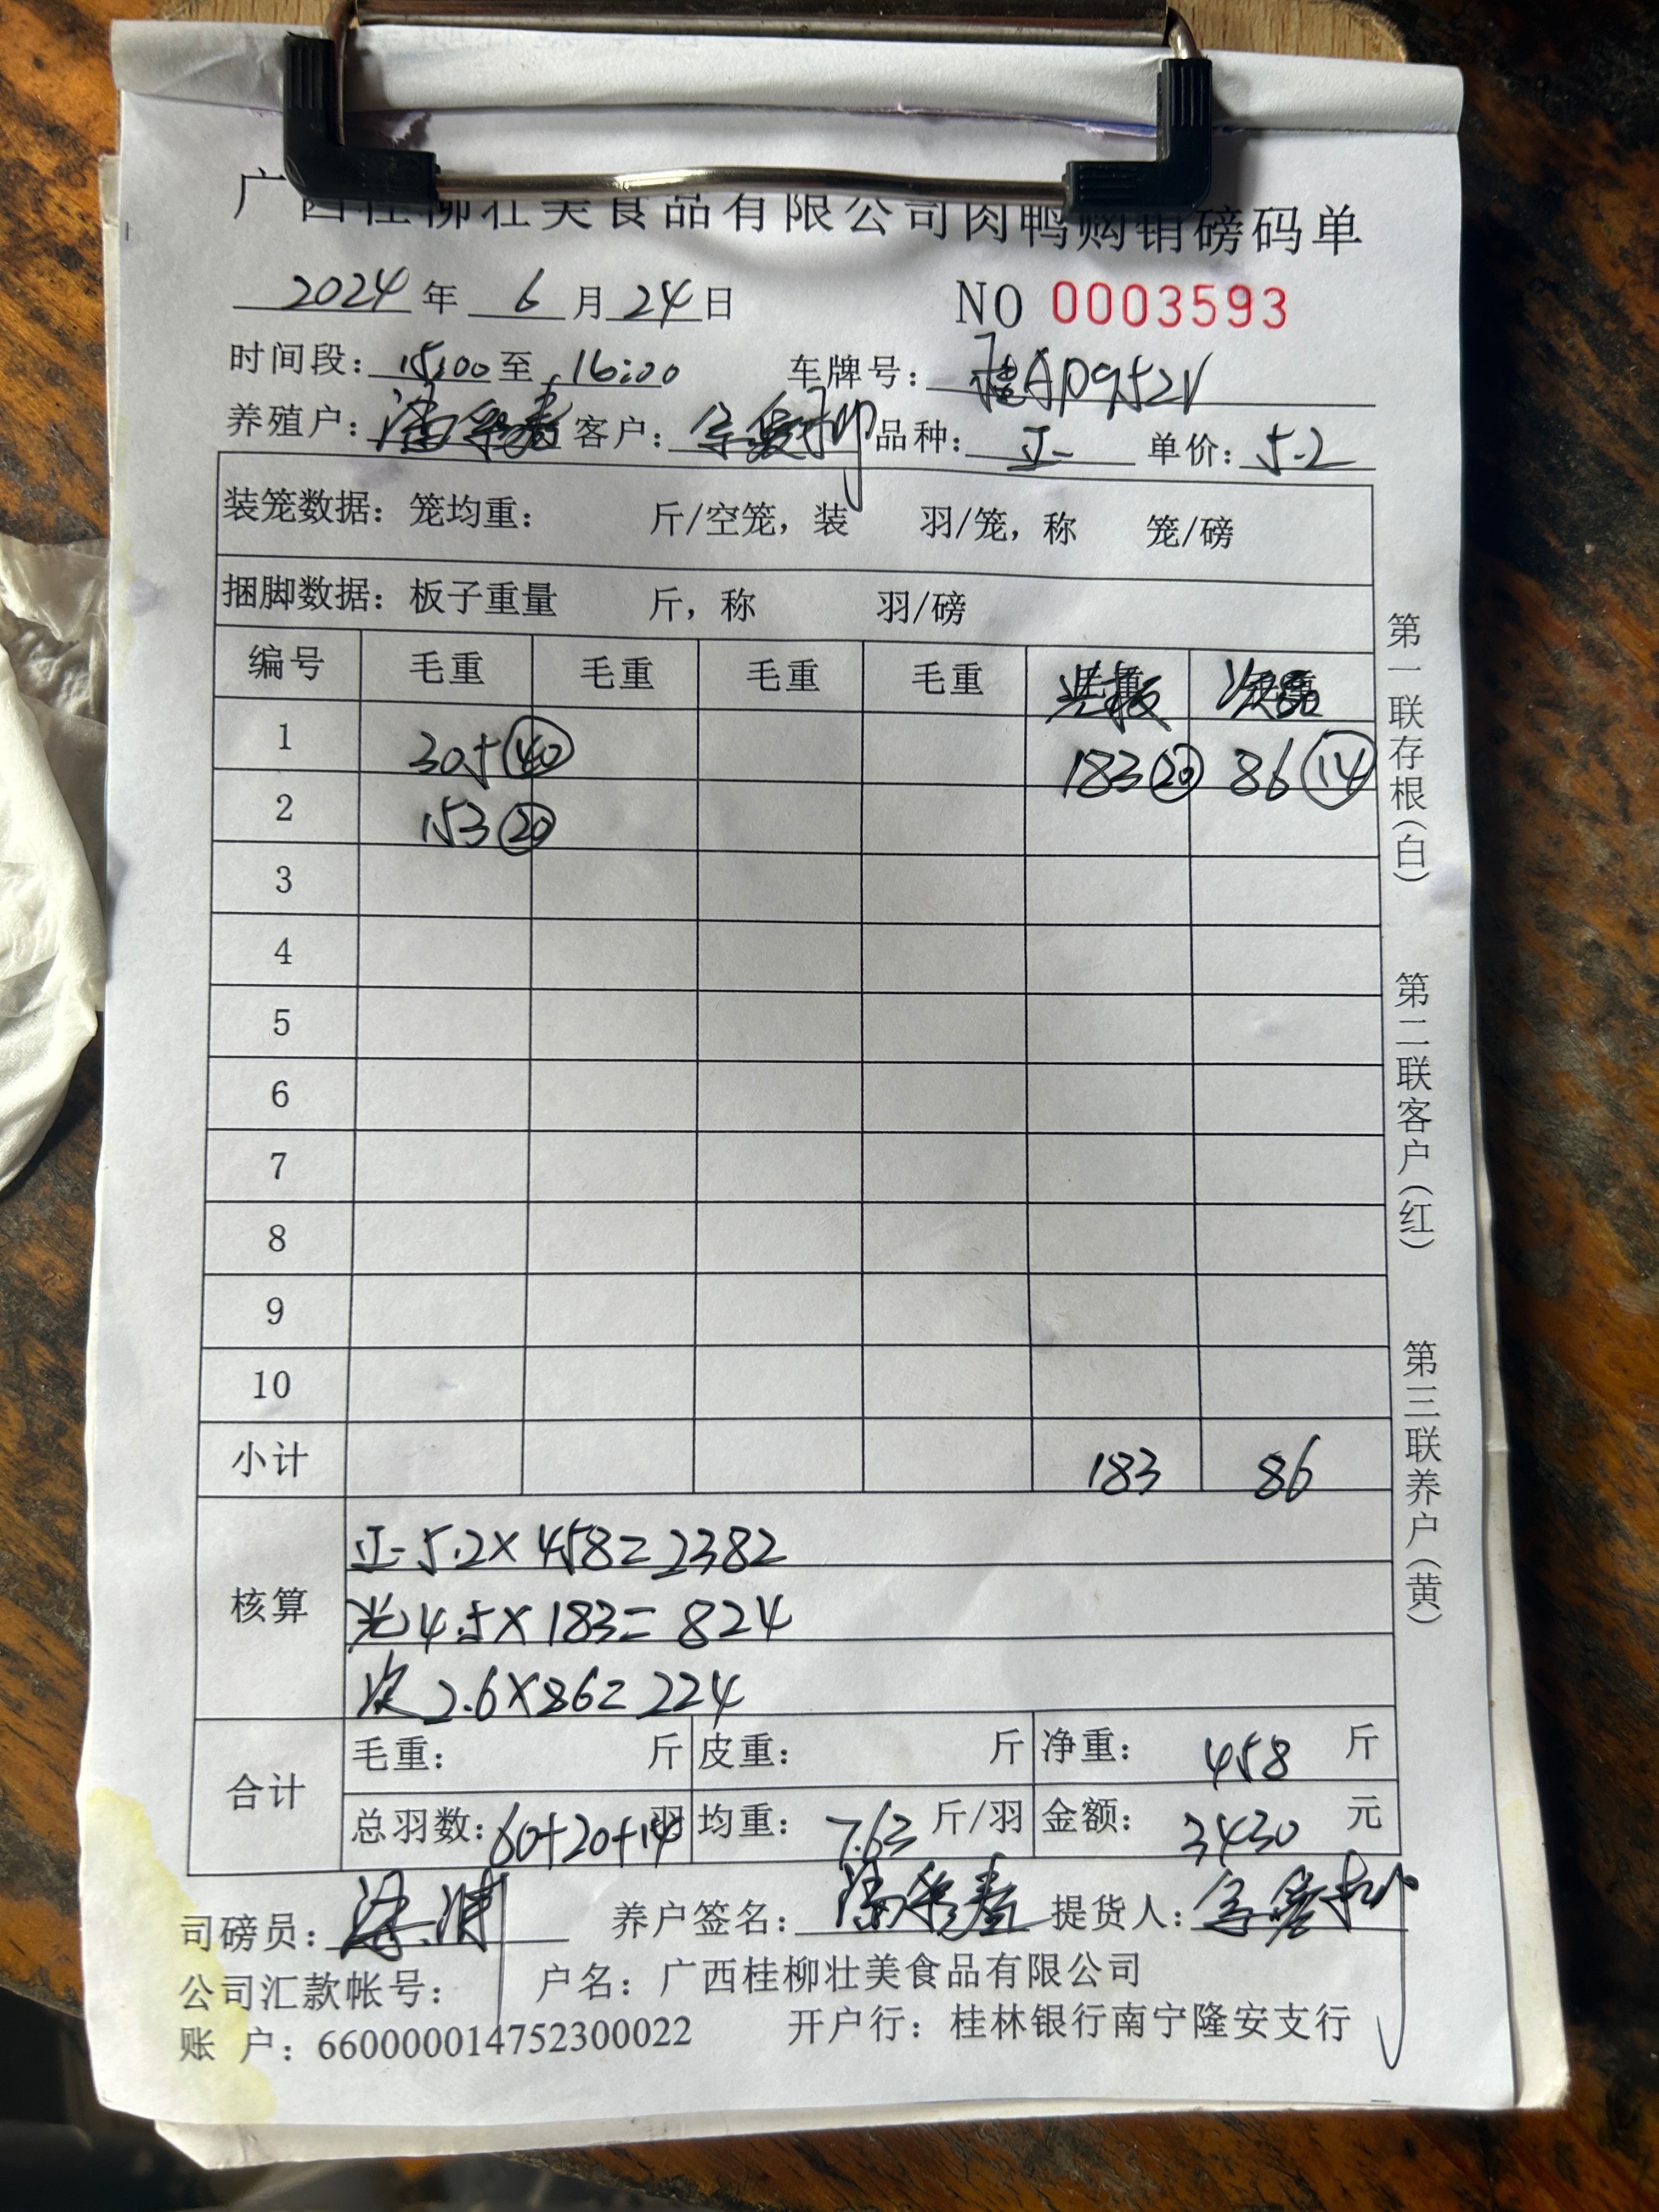 广西桂柳壮美食品有限公司肉鸭购销磅码单
2024年 6 月 24 日 NO 0003593
时间段: 15:00 至 16:00 车牌号: 桂AD0952V
养殖户: 客户: 品种: 正 单价: 5.2
装笼数据: 笼均重: 斤/空笼, 装 羽/笼, 称 笼/磅
捆脚数据: 板子重量 斤, 称 羽/磅
编号 毛重 毛重 毛重 毛重 光板 次品
1 305 40 183 20 86 14
2 153 20
3
4
5
6
7
8
9
10
小计 183 86
核算
正 5.2×458=2382
光 4.5×183=824
次 2.6×86=224
合计
毛重: 斤 皮重: 斤 净重: 458 斤
总羽数: 60+20+14 羽 均重: 7.63 斤/羽 金额: 3430 元
司磅员: 养户签名: 提货人:
公司汇款帐号: 户名: 广西桂柳壮美食品有限公司
账 户: 660000014752300022 开户行: 桂林银行南宁隆安支行
第一联存根(白)
第二联客户(红)
第三联养户(黄)